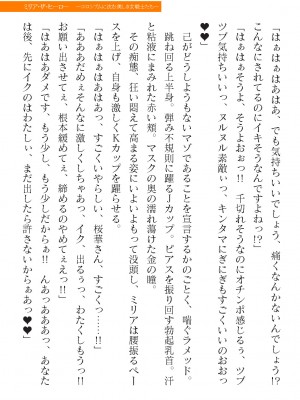 ミリア・ザ・ヒーロー
「はぁはぁはあはぁ、でも気持ちいいんでしょう、痛くなんかないんでしょう!?
こんなにされてるのにイキそうなんですよねっ!?」
「はぁはぁそうよ、そうよぉおっ!! 千切れそうなのにオチンポ感じるぅ、ツブ
ツブ気持ちいいっ、ヌルヌル素敵ぃっ、キンタマにぎにぎもすごくいいのおおっ
♥♥」
己がどうしようもないマゾであることを宣言するかのごとく、喘ぐラメッド。
跳ね回る上半身。弾み不規則に躍るJカップ。ピアスを振り回す勃起乳首。汗
と粘液にまみれた赤い頬。マスクの奥の濡れ蕩けた金の瞳。
その痴態、狂い悶えて高まる姿にいよいよもって没頭し、ミリアは腰振るペー
スを上げ、自身も激しくKカップを躍らせる。
「はぁはぁはあはぁっ、すごくいやらしい、桜華さん、すごくっ…!!」
「あああだめぇそんなに激しくしちゃあっ、イク、出るぅっ、わたくしもうっ!!
お願い出させてぇ、根本緩めてぇ、締めるのやめてぇえっ!!」
「はあはあダメです もう少し、もう少しだからぁ!! んああっああっ、あなた
は後、先にイクのはわたしぃ、まだ出したら許さないからぁあっ♥♥」